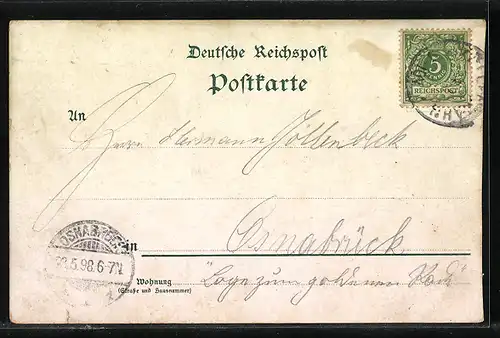 Deutsche Reichspost
Postkarte
5
REICHSPOST
An
Herrn Hermann
OSNABRÜCK
5.98.6-7N
in Osnabrück
Wohnung
(Straße und Hausnummer)
Loge zum goldenen Rad